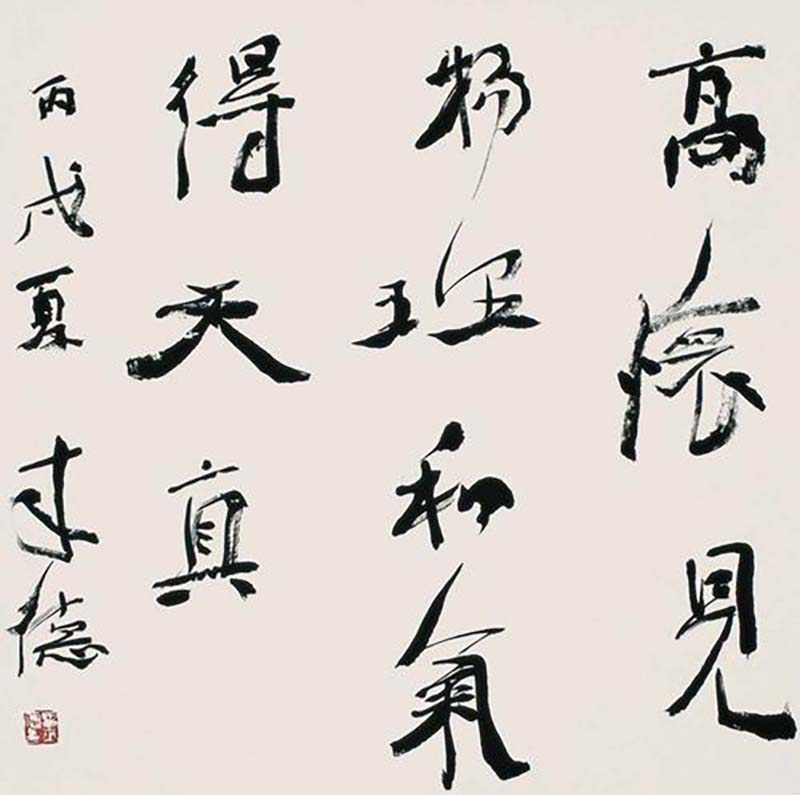 高懷見
物理和氣
得天真
丙戌夏來德